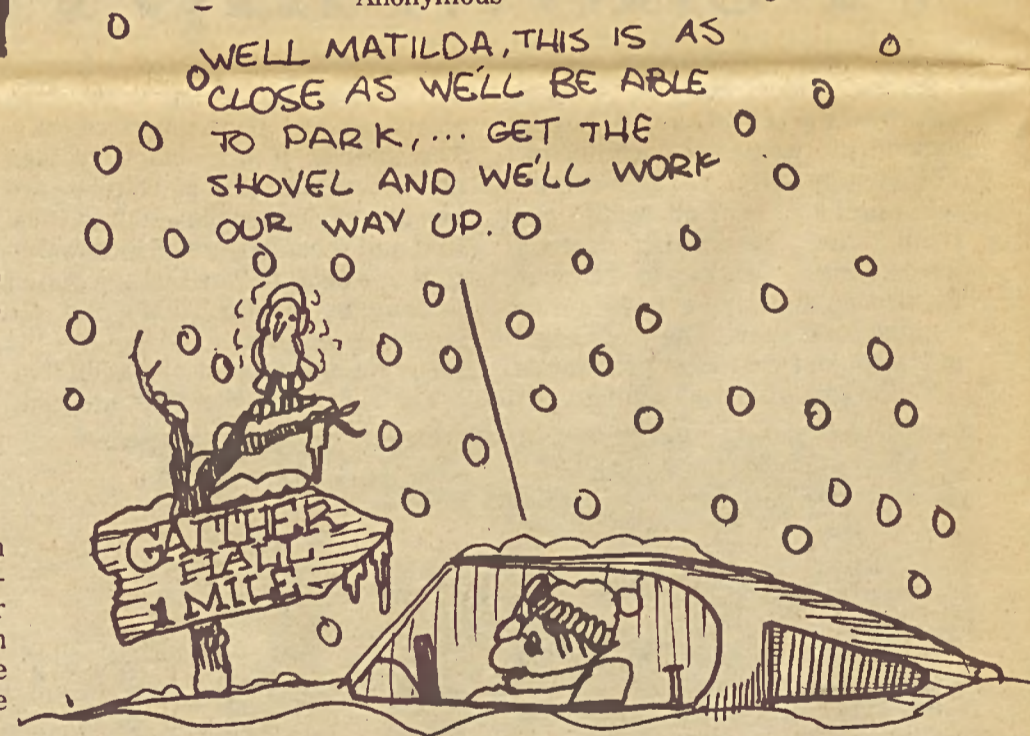 Anonymous
WELL MATILDA, THIS IS AS
CLOSE AS WE'LL BE ABLE
TO PARK,... GET THE
SHOVEL AND WE'LL WORK
OUR WAY UP.
GAITHER
HALL
1 MILE